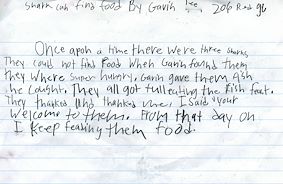 shark can find food By Gavin Lee, 206 Rm
Once apon a time there were three sharks
They could not find food when Gavin found them
they where super hungry. Gavin gave them fish
he cought. They all got full eating the Fish feast.
They thanked and thanked me. I said your
welcome to them. From that day on
I keep feading them food.